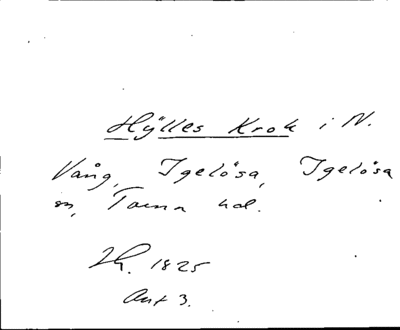 Hÿlles Krok i N.
Vång, Igelösa, Igelösa
sn, Torna hd.
1825
Akt 3.